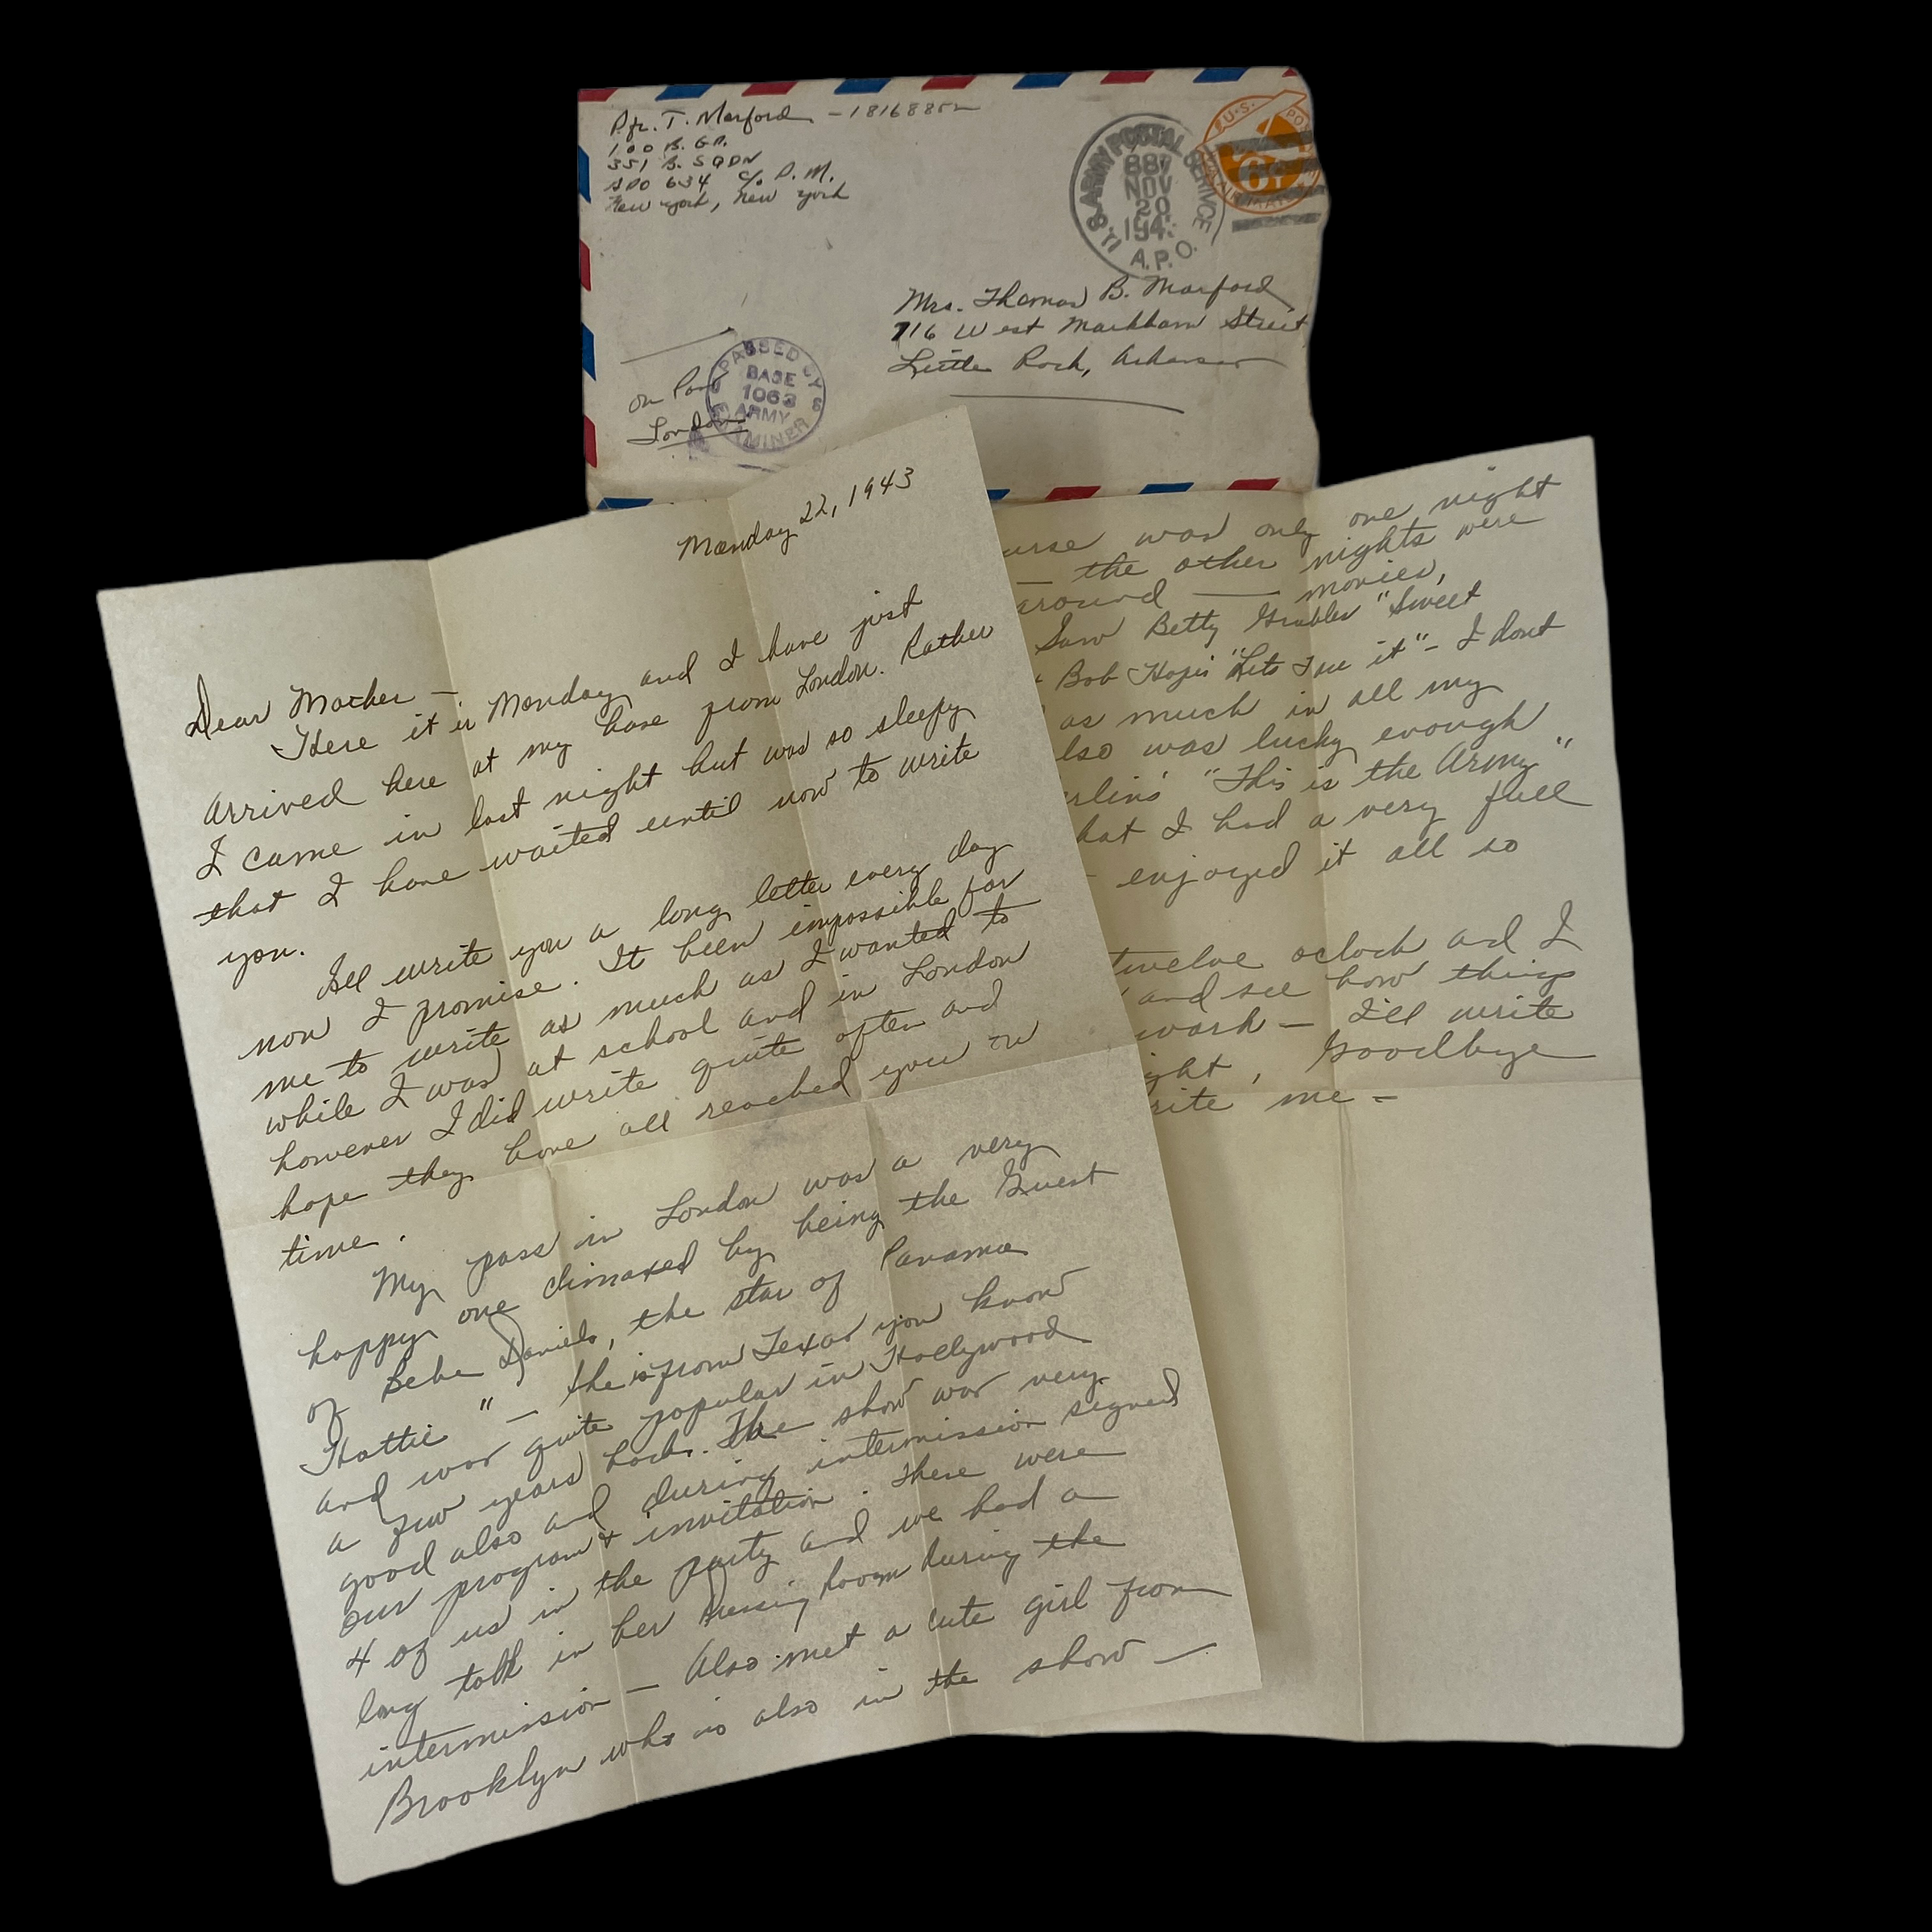 Pfc. T. Marford - 18168852
100 B. GR.
351 B. SQDN
APO 634 c/o P. M.
New York, New York
U.S. ARMY POSTAL SERVICE
887
NOV
20
194
A.P.O.
U.S. POS
6¢
AIR MAIL
Mrs. Thomas B. Marford
716 West Markham Street
Little Rock, Arkansas
on Pass
London
PASSED BY
BASE
1063
ARMY
EXAMINER
Monday 22, 1943
Dear Mother —
Here it is Monday and I have just
arrived here at my base from London. Rather
I came in last night but was so sleepy
that I have waited until now to write
you.
Ill write you a long letter every day
now I promise. It been impossible for
me to write as much as I wanted to
while I was at school and in London
however I did write quite often and
hope they have all reached you on
time.
My pass in London was a very
happy one climaxed by being the Guest
of Bebe Daniels, the star of Panama
Hattie" — She is from Texas you know
and was quite popular in Hollywood
a few years back. The show was very
good also and during intermission signed
our program & invitation. There were
4 of us in the party and we had a
long talk in her dressing room during the
intermission — Also met a cute girl from
Brooklyn who is also in the show —
urse was only one night
— the other nights were
around — movies,
Saw Betty Grables "Sweet
Bob Hopes "Lets Face it" - I dont
as much in all my
lso was lucky enough
erlins' "This is the Army"
hat I had a very full
- enjoyed it all so
twelve oclock and I
and see how things
work — I'll write
ght, Goodbye
rite me -